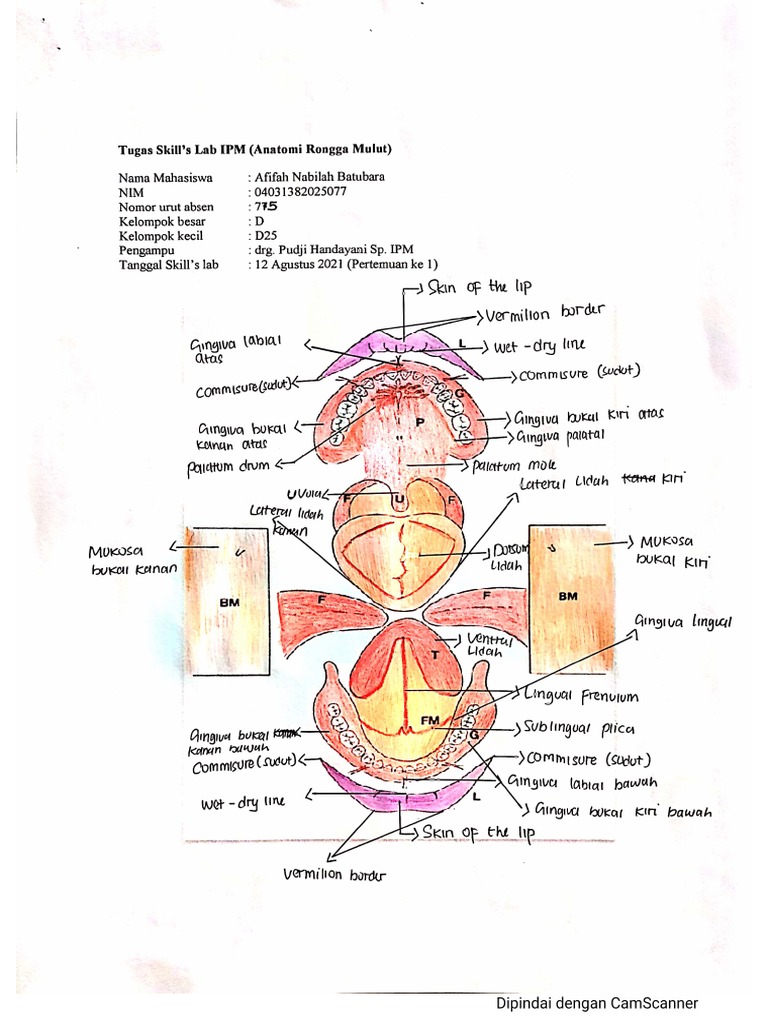 Tugas Skill's Lab IPM (Anatomi Rongga Mulut)
Nama Mahasiswa : Afifah Nabilah Batubara
NIM : 04031382025077
Nomor urut absen : 775
Kelompok besar : D
Kelompok kecil : D25
Pengampu : drg. Pudji Handayani Sp. IPM
Tanggal Skill's lab : 12 Agustus 2021 (Pertemuan ke 1)
Skin of the lip
Vermilion border
Gingiva labial
atas
L
Wet-dry line
Commisure (sudut)
Commisure (sudut)
G
Gingiva bukal
kanan atas
P
Gingiva bukal kiri atas
Gingiva palatal
Palatum drum
Palatum mole
Lateral lidah kana kiri
Uvula
F
U
F
Lateral lidah
kanan
Mukosa
bukal kanan
Dorsum
lidah
Mukosa
bukal kiri
BM
F
F
BM
Gingiva lingual
Ventral
lidah
T
Lingual Frenulum
FM
Sublingual plica
G
Gingiva bukal
kanan bawah
Commisure (sudut)
Commisure (sudut)
Gingiva labial bawah
Wet-dry line
L
Gingiva bukal kiri bawah
Skin of the lip
Vermilion border
Dipindai dengan CamScanner